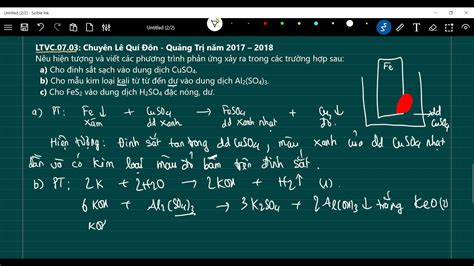 Untitled (2/2) - Scrble Ink
Untitled (2/2)
LTVC.07.03: Chuyên Lê Quí Đôn - Quảng Trị năm 2017 – 2018
Nêu hiện tượng và viết các phương trình phản ứng xảy ra trong các trường hợp sau:
a) Cho đinh sắt sạch vào dung dịch CuSO₄.
b) Cho mẩu kim loại kali từ từ đến dư vào dung dịch Al₂(SO₄)₃.
c) Cho FeS₂ vào dung dịch H₂SO₄ đặc nóng, dư.
Fe
dd CuSO₄
a) PT: Fe↓ + CuSO₄ → FeSO₄ + Cu↓
xám dd xanh dd xanh nhạt đỏ
Hiện tượng: Đinh sắt tan trong dd CuSO₄, màu xanh của dd CuSO₄ nhạt
dần và có kim loại màu đỏ bám trên đinh sắt.
b) PT: 2K + 2H₂O → 2KOH + H₂↑ (1).
6KOH + Al₂(SO₄)₃ → 3K₂SO₄ + 2Al(OH)₃↓ trắng keo (2)
KO